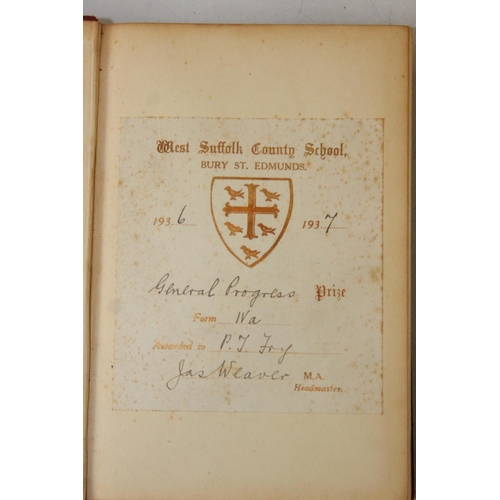 West Suffolk County School,
BURY ST. EDMUNDS.
1936 1937
General Progress Prize
Form IVa
Awarded to P. J. Fry
Jas Weaver M.A.
Headmaster.